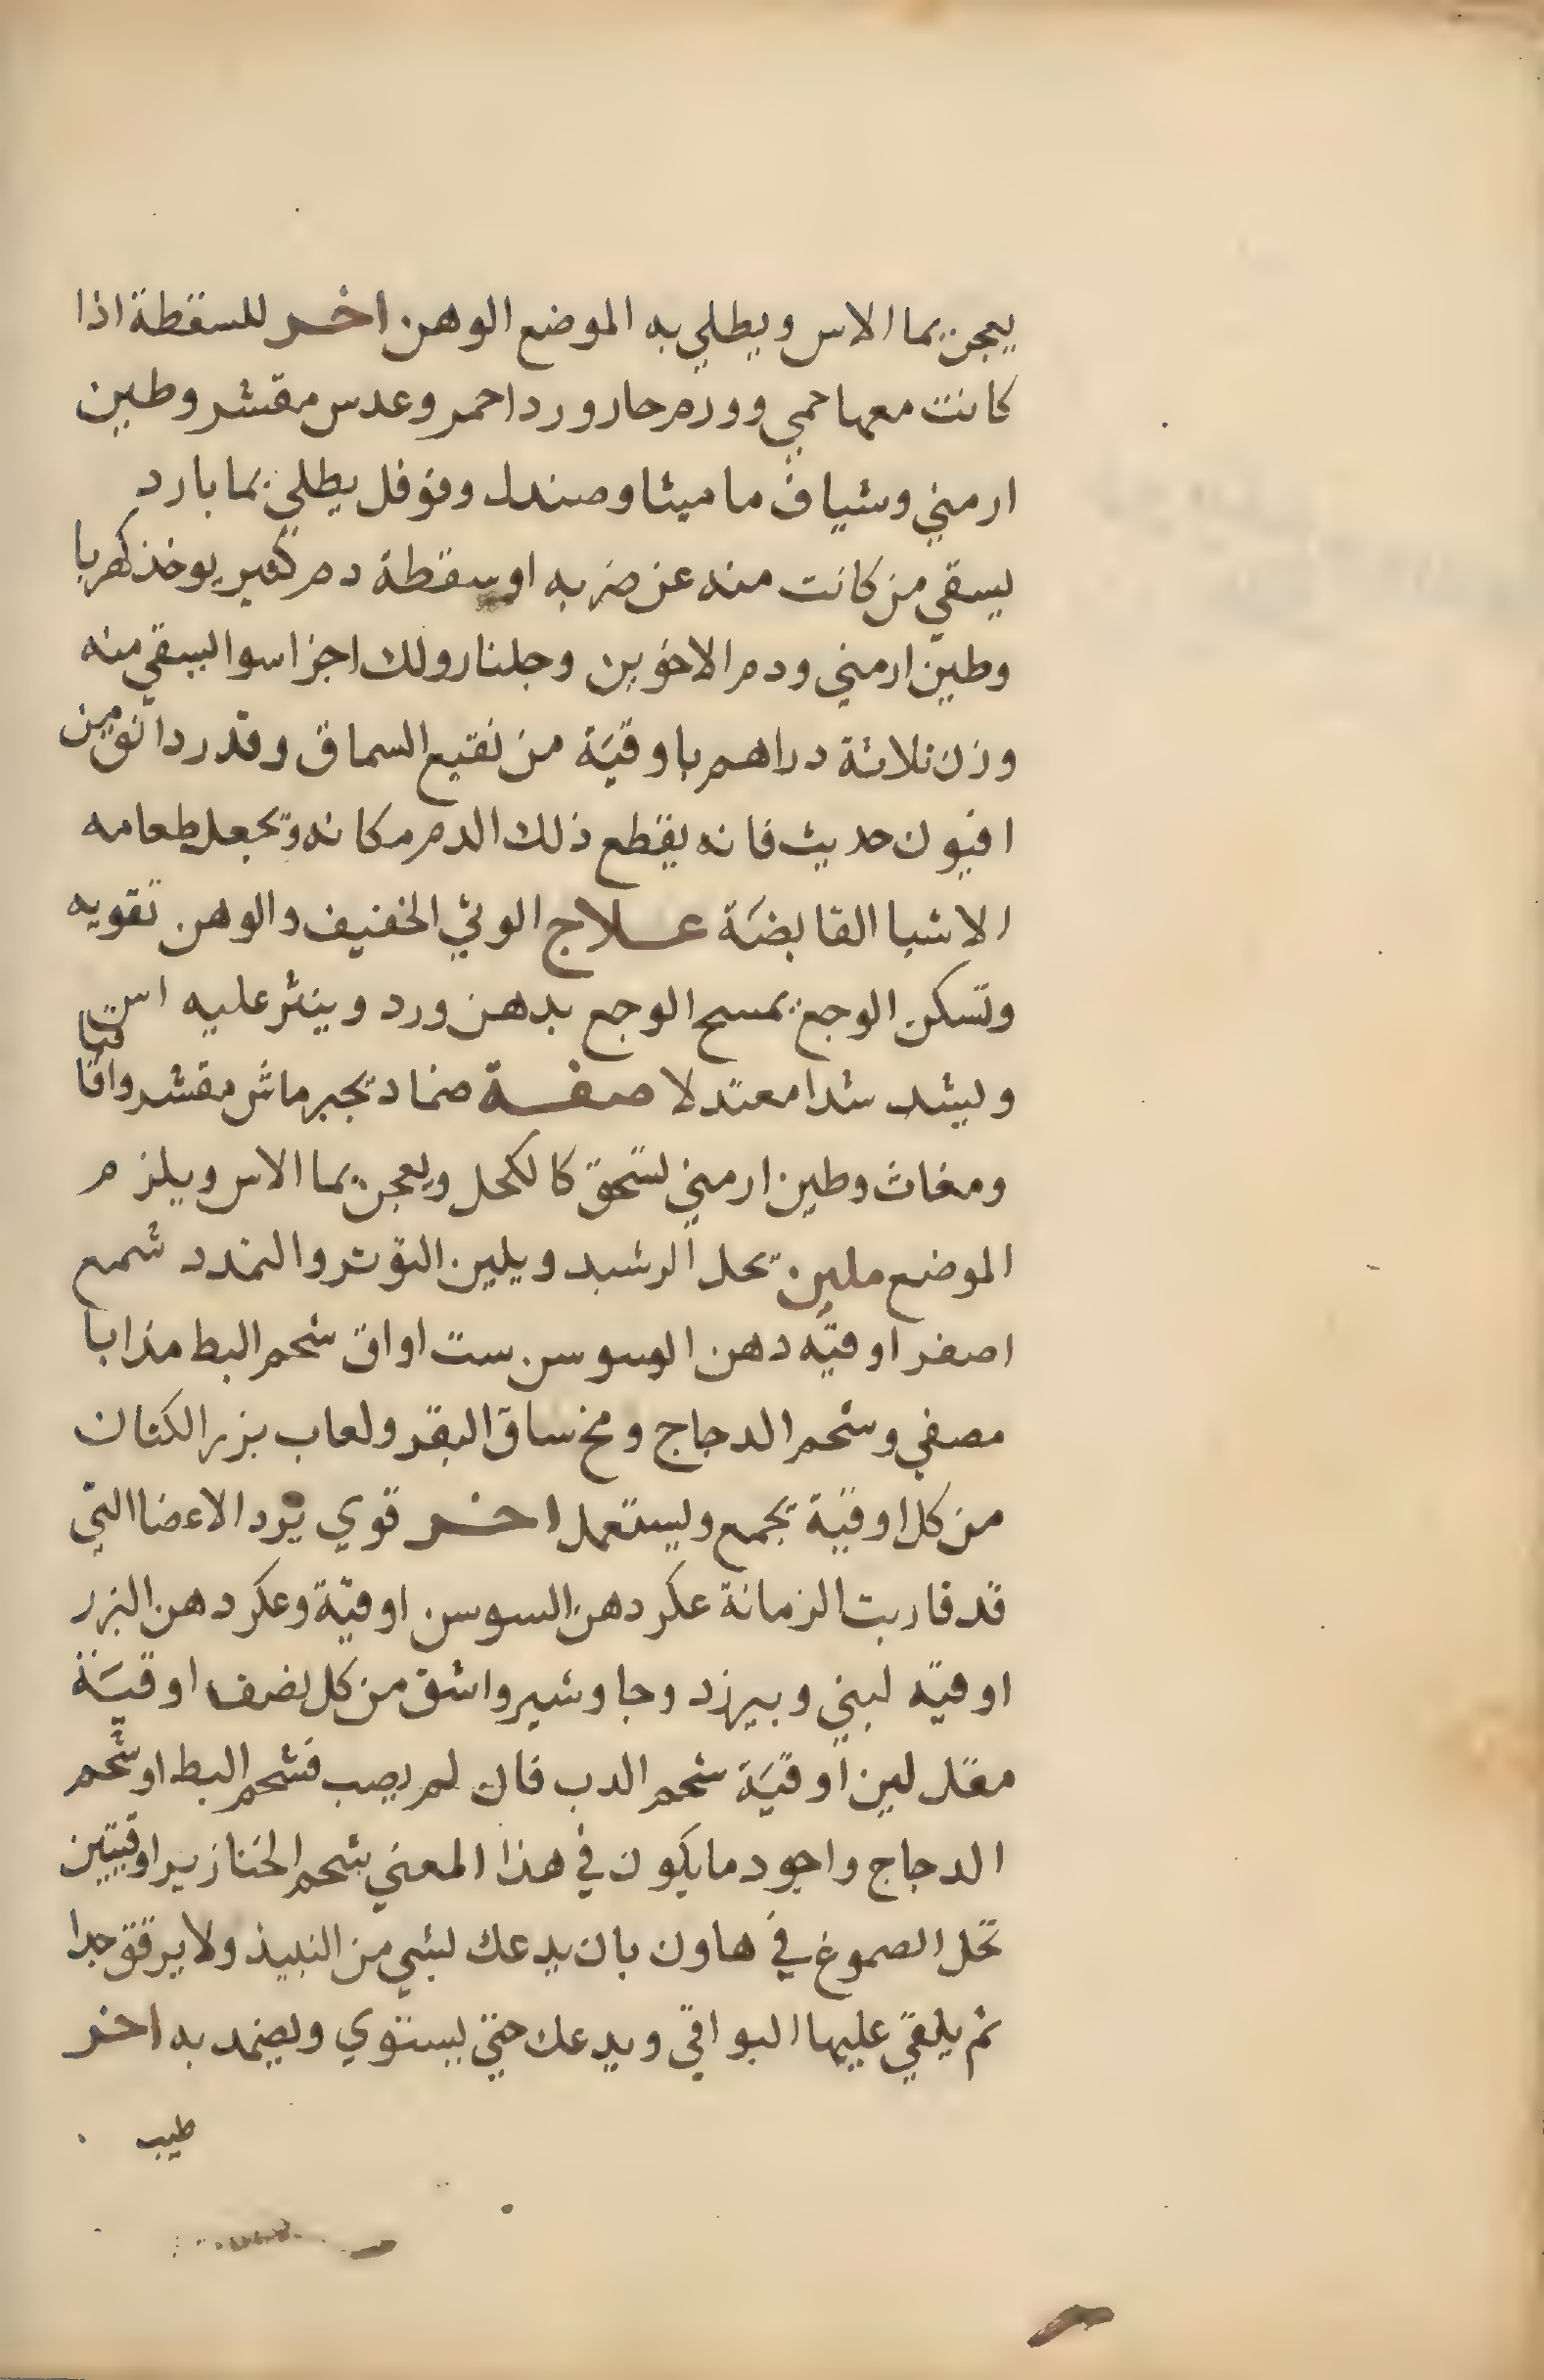 يعجن بما الاس ويطلي به الموضع الوهن اخر للسقطة اذا
كانت معها حمي وورم حار ورد احمر وعدس مقشر وطين
ارمني وشياف ماميثا وصندل وفوفل يطلي بما بارد
يسقي من كانت منه عن ضربه او سقطة دم كثير يوخذ كهربا
وطين ارمني ودم الاخوين وجلنار ولك اجزا سوا يسقي منه
وزن ثلاثة دراهم باوقية من نقيع السماق وقدر دانق من
افيون حديث فانه يقطع ذلك الدم مكانه وتجعل طعامه
الاشيا القابضة علاج الوثي الخفيف والوهن تقويه
وتسكن الوجع يمسح الوجع بدهن ورد وينثر عليه اس
ويشد شدا معتدلا صفة ضماد يجبر ماش مقشر واقاقيا
ومغاث وطين ارمني يسحق كالكحل ويعجن بما الاس ويلزم
الموضع ملين يحل الرشبد ويلين التوتر والتمدد شمع
اصفر اوقيه دهن السوسن ست اواق شحم البط مذابا
مصفي وشحم الدجاج ومخ ساق البقر ولعاب بزر الكتان
من كل اوقية يجمع ويستعمل اخر قوي يرد الاعضا التي
قد قاربت الزمانة عكر دهن السوسن اوقية وعكر دهن البزر
اوقيه لبني وبيرزد وجاوشير واشق من كل نصف اوقية
مقل لين اوقية شحم الدب فان لم يصب فشحم البط او شحم
الدجاج واجود ما يكون في هذا المعني شحم الخنازير اوقيتين
تحل الصموغ في هاون بان يدعك بشي من النبيذ ولا يرقق جدا
ثم يلقي عليها البواقي ويدعك حتي يستوي ويضمد به اخر
طيب